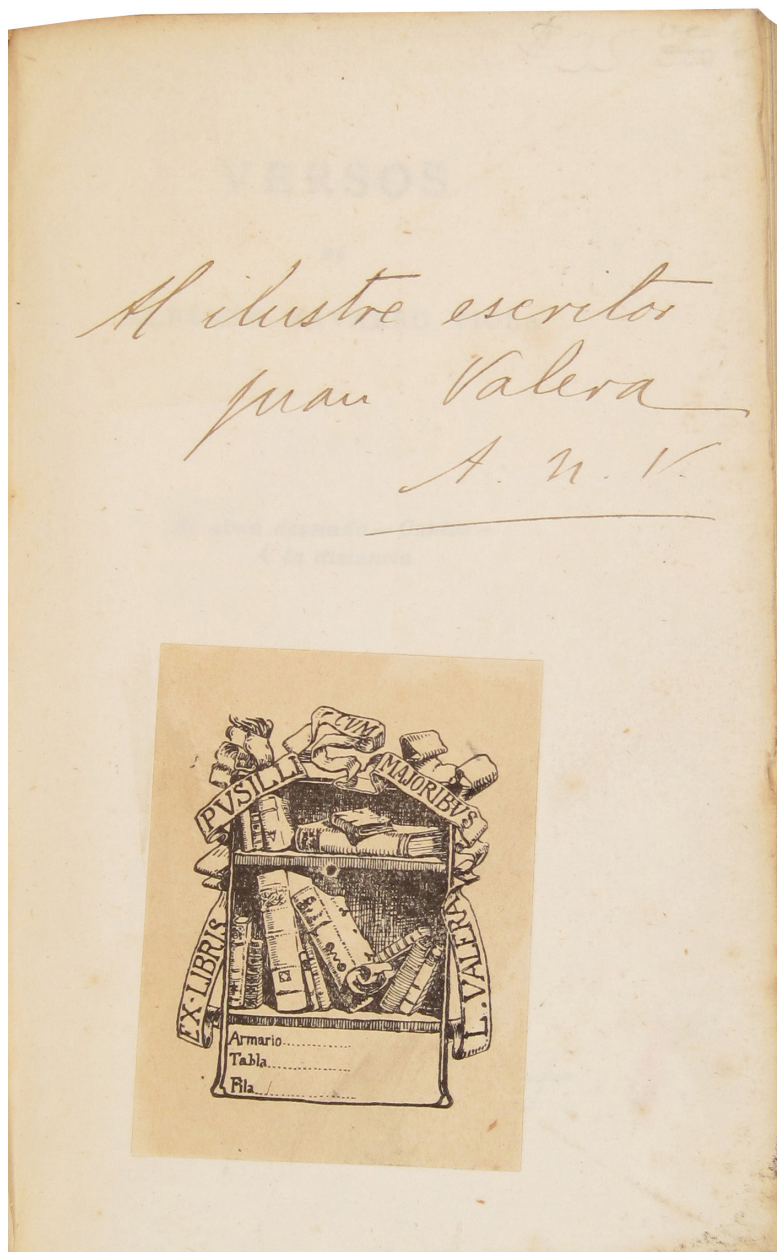 VERSOS
Al ilustre escritor
Juan Valera
A. N. V.
PVSILLI CVM MAJORIBVS
EX-LIBRIS L. VALERA
Armario
Tabla
Fila